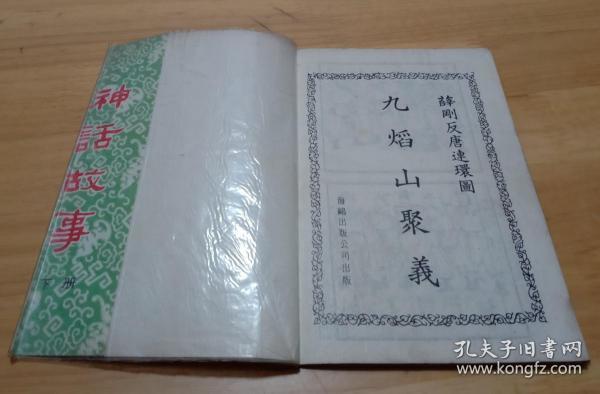 神話故事
下册
薛剛反唐連環圖
九熖山聚義
海鷗出版公司出版
孔夫子旧書网
www.kongfz.com